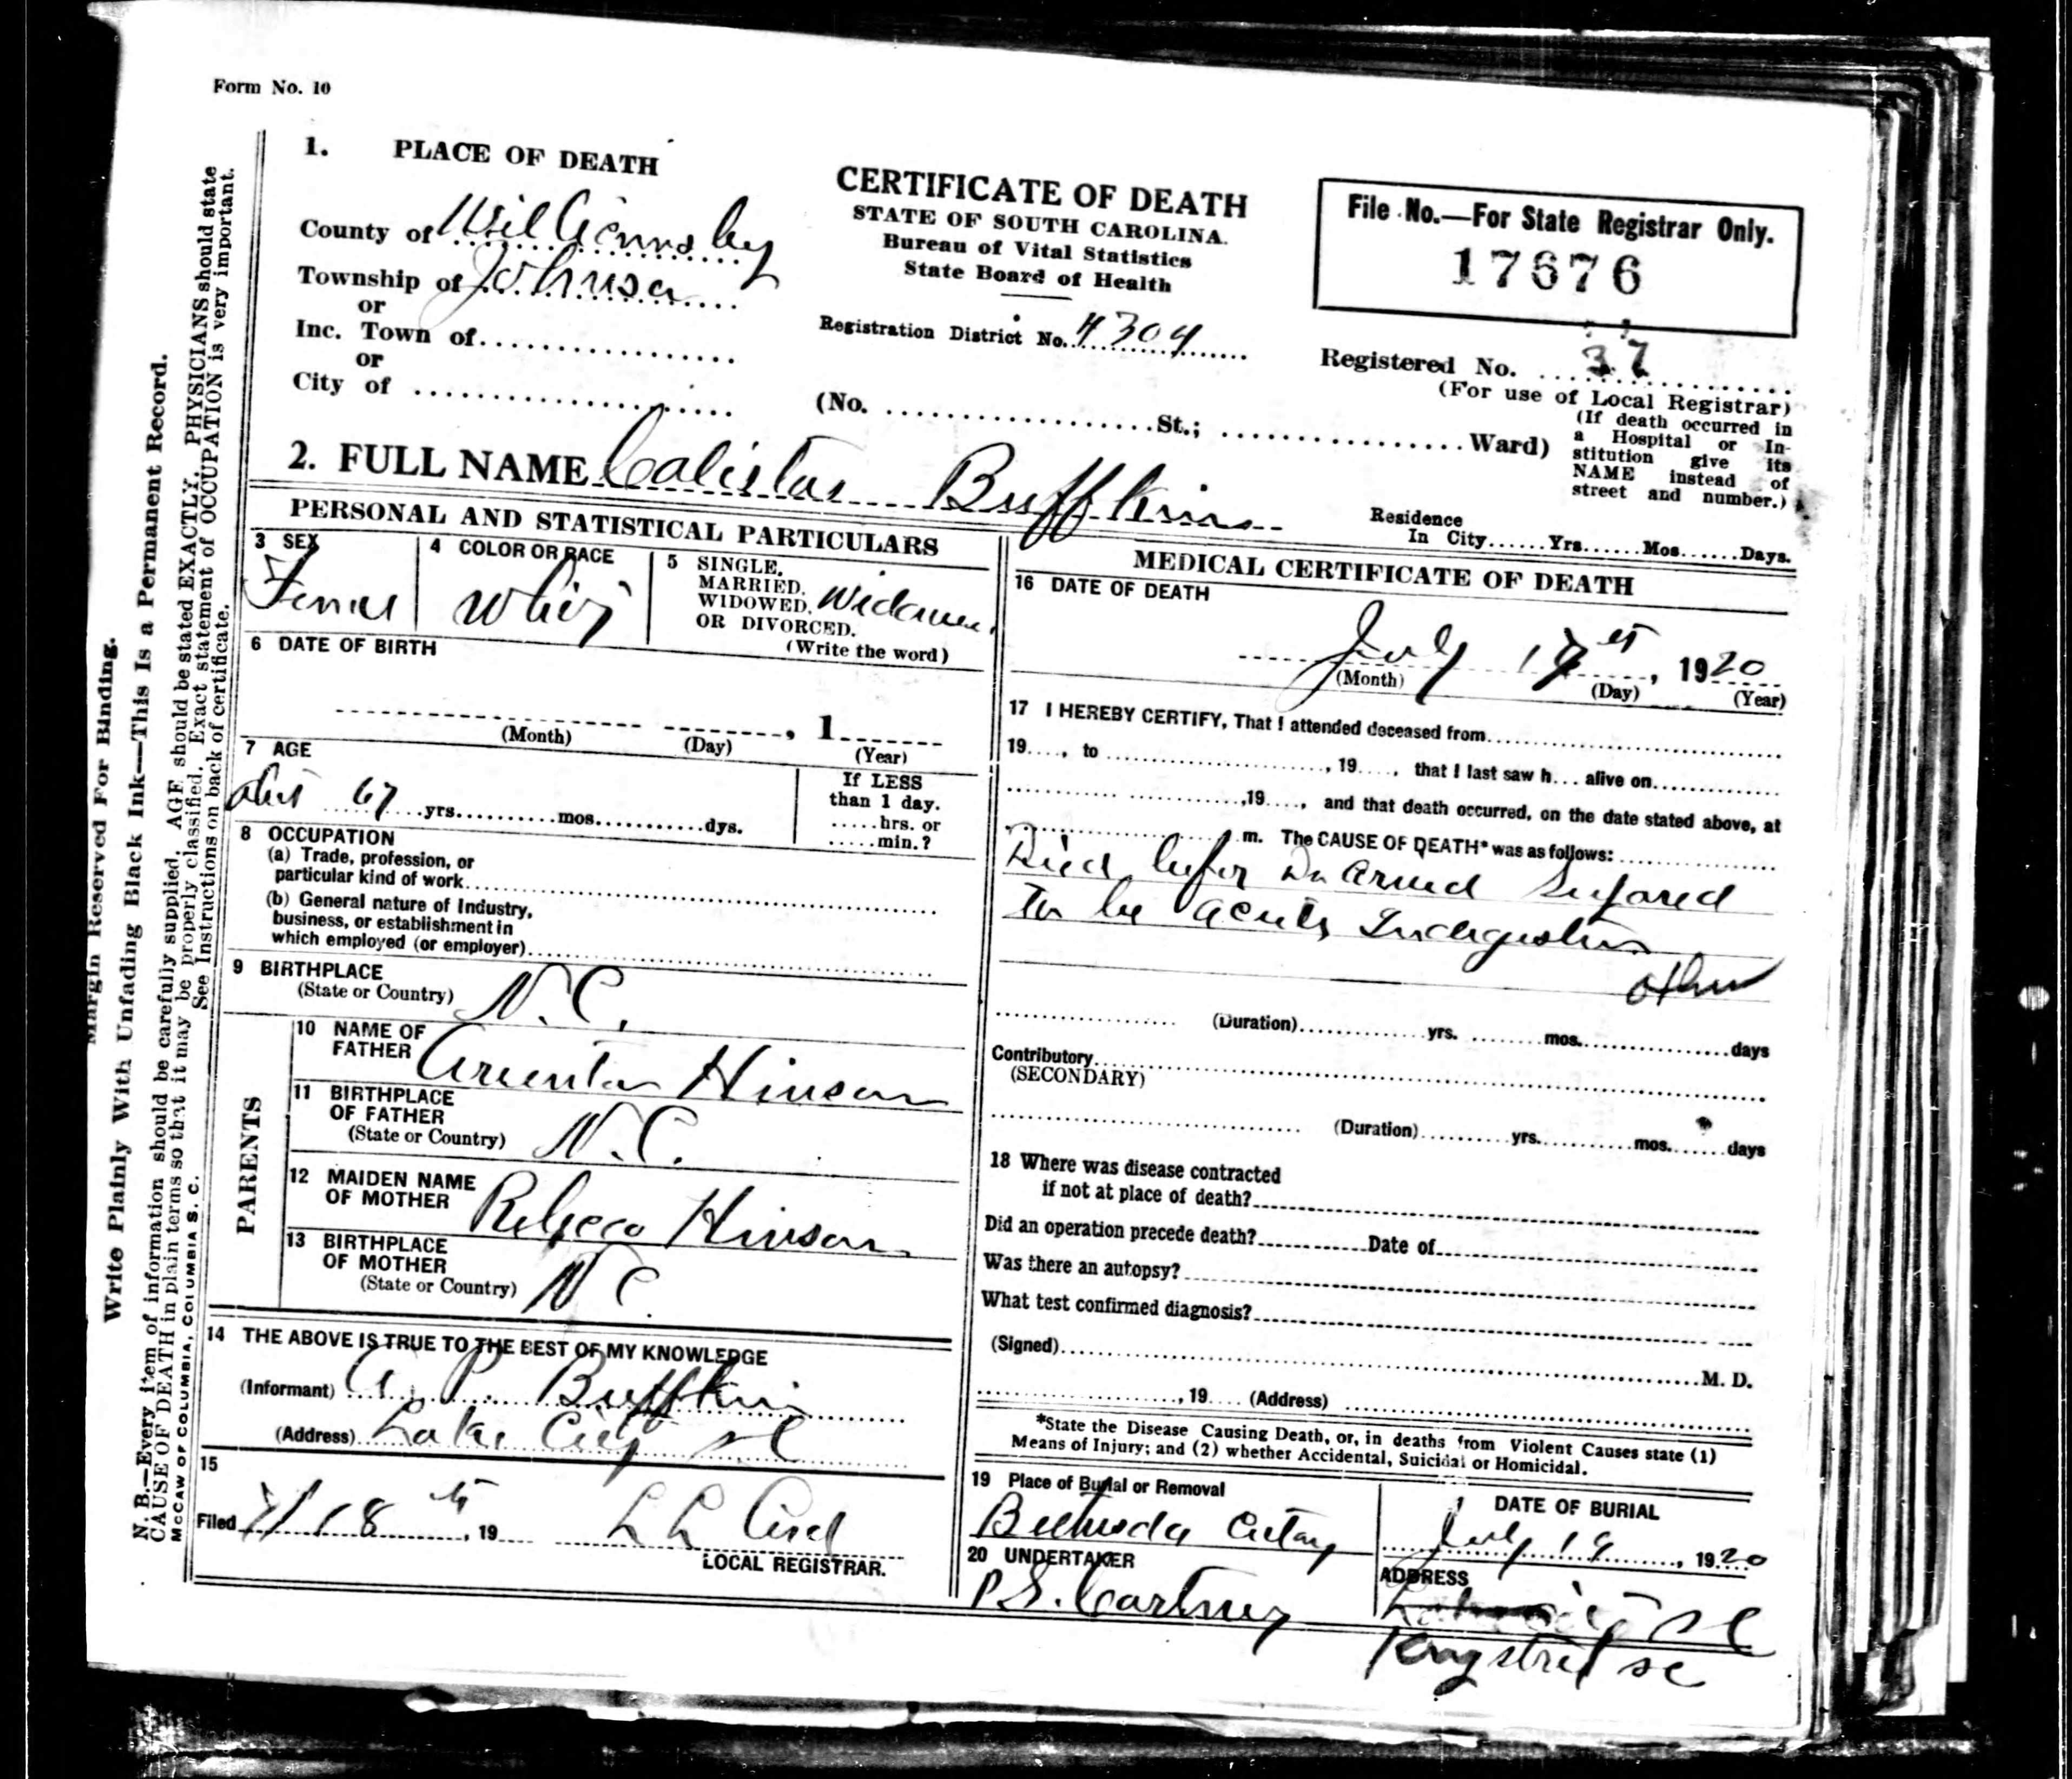 Form No. 10
1. PLACE OF DEATH
County of Williamsburg
Township of Johnson
or
Inc. Town of
or
City of
CERTIFICATE OF DEATH
STATE OF SOUTH CAROLINA.
Bureau of Vital Statistics
State Board of Health
Registration District No. 4304
File No.—For State Registrar Only.
17676
Registered No. 37
(For use of Local Registrar)
(No. St.; Ward)
(If death occurred in
a Hospital or In-
stitution give its
NAME instead of
street and number.)
2. FULL NAME Calista Buffkin
Residence
In City......Yrs......Mos......Days.
PERSONAL AND STATISTICAL PARTICULARS
3 SEX
4 COLOR OR RACE
5 SINGLE,
MARRIED,
WIDOWED,
OR DIVORCED.
(Write the word)
6 DATE OF BIRTH
, 1
(Month) (Day) (Year)
7 AGE
67 yrs. mos. dys.
If LESS
than 1 day.
.....hrs. or
.....min.?
8 OCCUPATION
(a) Trade, profession, or
particular kind of work
(b) General nature of Industry,
business, or establishment in
which employed (or employer)
9 BIRTHPLACE
(State or Country) N.C.
PARENTS
10 NAME OF
FATHER Hinson
11 BIRTHPLACE
OF FATHER
(State or Country) N.C.
12 MAIDEN NAME
OF MOTHER Rebecca Hinson
13 BIRTHPLACE
OF MOTHER
(State or Country) N C.
14 THE ABOVE IS TRUE TO THE BEST OF MY KNOWLEDGE
(Informant) A. P. Buffkin
(Address) Lake City SC
15
Filed 7/18th, 19 L L
LOCAL REGISTRAR.
MEDICAL CERTIFICATE OF DEATH
16 DATE OF DEATH
July , 1920
(Month) (Day) (Year)
17 I HEREBY CERTIFY, That I attended deceased from
19...., to , 19...., that I last saw h... alive on
,19...., and that death occurred, on the date stated above, at
m. The CAUSE OF DEATH* was as follows:
Died befor Dr
To be acute Indigestion
other
(Duration) yrs. mos. days
Contributory
(SECONDARY)
(Duration) yrs. mos. days
18 Where was disease contracted
if not at place of death?
Did an operation precede death? Date of
Was there an autopsy?
What test confirmed diagnosis?
(Signed) M. D.
, 19.... (Address)
*State the Disease Causing Death, or, in deaths from Violent Causes state (1)
Means of Injury; and (2) whether Accidental, Suicidal or Homicidal.
19 Place of Burial or Removal
DATE OF BURIAL
July 19, 1920
20 UNDERTAKER
ADDRESS
SC
Kingstree SC
Margin Reserved For Binding.
Write Plainly With Unfading Black Ink—This Is a Permanent Record.
N. B.—Every item of information should be carefully supplied. AGE should be stated EXACTLY. PHYSICIANS should state
CAUSE OF DEATH in plain terms so that it may be properly classified. Exact statement of OCCUPATION is very important.
See Instructions on back of certificate.
McCAW OF COLUMBIA, COLUMBIA S. C.